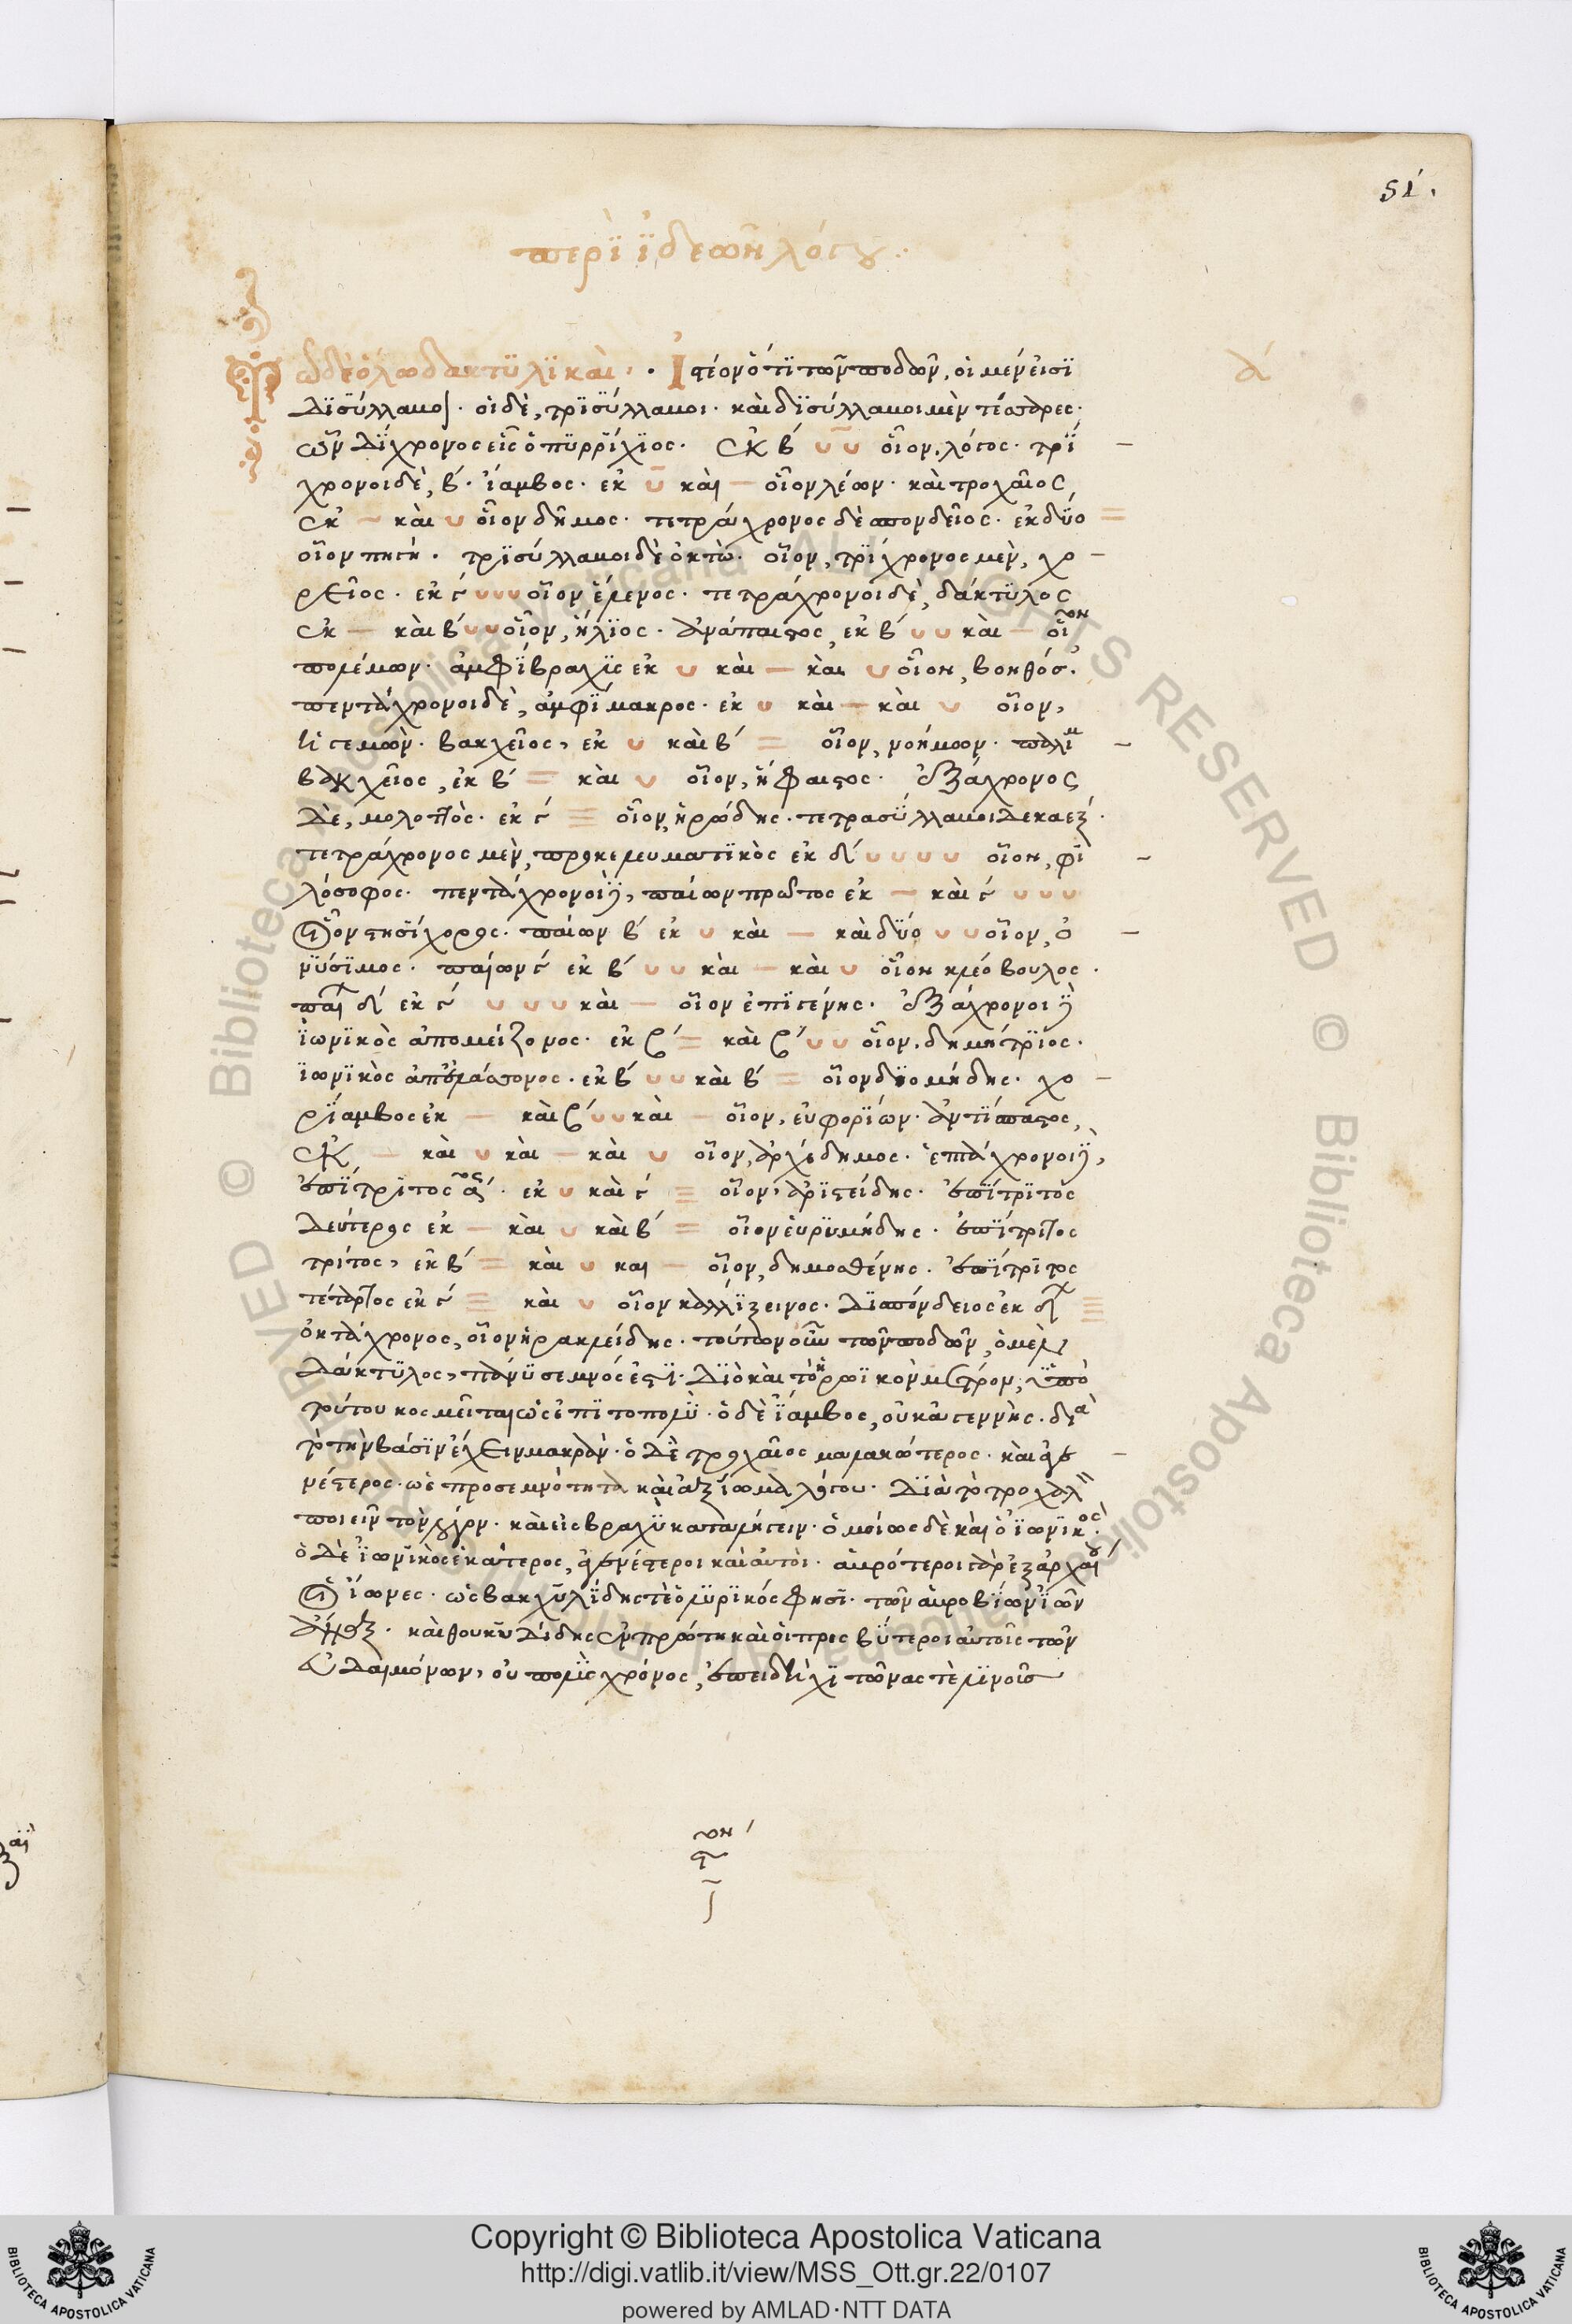 51.
περὶ ϊδεῶν λόγου.
Τῶ δὲ ὅλω δακτϋλϊκαὶ. Ἰστέον ὅτϊ τῶν ποδῶν, οἱ μέν εἰσϊ
δϊσύλλαβοι. οἱ δὲ, τρϊσύλλαβοι. καὶ δϊσύλλαβοι μὲν τέσσαρες.
ὧν δϊχρονος εἷς ὁ πϋρρΐχϊος. ἐκ β´ υ υ οἷον, λόγος. τρΐ –
χρονοι δὲ, β. ἴαμβος. ἐκ υ καὶ – οἷον λέων. καὶ τροχαῖος
ἐκ – καὶ υ οἷον δῆμος. τετράχρονος δὲ σπονδεῖος. ἐκ δύο =
οἷον πηγή. τρϊσύλλαβοι δὲ ὀκτώ. οἷον, τρΐχρονος μὲν, χο –
ρεῖος. ἐκ γ´ υυυ οἷον ἕλενος. τετράχρονοι δὲ, δάκτϋλος
ἐκ – καὶ β´ υυ οἷον, ἥλϊος. ἀνάπαιστος, ἐκ β´ υ υ καὶ – οἷον
πολέμων. ἀμφΐβραχϋς ἐκ υ καὶ – καὶ υ οἷον, βοηθός.
πεντάχρονοι δὲ, ἀμφΐμακρος. ἐκ υ καὶ – καὶ υ οἷον,
ἡγεμών. βακχεῖος, ἐκ υ καὶ β´ = οἷον, νοήμων. παλιμ –
βάκχειος, ἐκ β´ = καὶ υ οἷον, ἥφαιστος. ἑξάχρονος
δὲ, μολοττὸς. ἐκ γ´ ≡ οἷον, ἡρώδης. τετρασύλλαβοι δεκαέξ.
τετράχρονος μὲν, προκελευματϊκὸς ἐκ δ´ υ υ υ υ οἷον, φϊ –
λόσοφος. πεντάχρονοι δὲ, παίων πρῶτος ἐκ – καὶ γ´ υ υ υ
οἷον στησΐχορος. παίων β´ ἐκ υ καὶ – καὶ δύο υ υ οἷον, ὀ –
νϋσϊμος. παίων γ´ ἐκ β´ υ υ καὶ – καὶ υ οἷον κλεόβουλος.
παι δ´ ἐκ γ´ υ υ υ καὶ – οἷον ἐπϊγένης. ἑξάχρονοι δὲ
ϊωνϊκὸς ἀπομείζονος. ἐκ β´ = καὶ β´ υ υ οἷον, δημήτρϊος.
ϊωνϊκὸς ἀπ' ἐλάσσονος. ἐκ β´ υ υ καὶ β´ = οἷον δϊομήδης. χο –
ρΐαμβος ἐκ – καὶ β´ υυ καὶ – οἷον, εὐφορΐων. ἀντΐσπαστος,
ἐκ – καὶ υ καὶ – καὶ υ οἷον, ἀρχέδημος. ἑπτάχρονοι δὲ,
ἐπΐτρϊτος α´. ἐκ υ καὶ γ´ ≡ οἷον, ἀρϊστείδης. ἐπΐτρϊτος
δεύτερος ἐκ – καὶ υ καὶ β´ = οἷον εὐρϋμήδης. ἐπΐτριτος
τρίτος, ἐκ β´ = καὶ υ και – οἷον, δημοσθένης. ἐπΐτρϊτος
τέταρτος ἐκ γ´ ≡ καὶ υ οἷον καλλΐξεινος. δϊσπόνδειος ἐκ δ´
ὀκτάχρονος, οἷον ἡρακλείδης. τούτων οὖν τῶν ποδῶν, ὁ μὲν
δάκτϋλος, πάνϋ σεμνός ἐστϊ. δϊὸ καὶ τὸ ἡρωϊκὸν μέτρον, ϋπὸ
τούτου κοσμεῖται ὡς ἐπϊτοπολϋ. ὁ δὲ ΐαμβος, οὐκ ἀγεννὴς. διὰ
τὸ τὴν βάσϊν ἔχειν μακράν. ὁ δὲ τροχαῖος μαλακώτερος. καὶ ἀγε –
νέστερος. ὡς προς σεμνότητα καὶ ἀξΐωμα λόγου. δϊὰ τὸ τροχαλὸν
ποιεῖν τὸν λόγον. καὶ εἰς βραχϋ καταλήγειν. ὁμοίως δὲ καὶ ὁ ϊωνϊκὸς.
ὁ δὲ ϊωνϊκὸς ἑκάτερος, ἀγενέστεροι καὶ αὐτοὶ. ἁβρότεροι γὰρ ἐξ ἀρχαίου
οἱ ΐωνες. ὡς βακχϋλΐδης τὲ ὁ λϋρϊκός φησϊ. τῶν ἁβροβΐων ϊώνων
ἄναξ. καὶ θουκϋδίδης ἐν πρώτη καὶ οἱ πρεσβΰτεροι αὐτοῖς τῶν
εὐδαιμόνων, οὐ πολὺς χρόνος, ἐπειδὴ χϊτῶνας τὲ λϊνοῦς